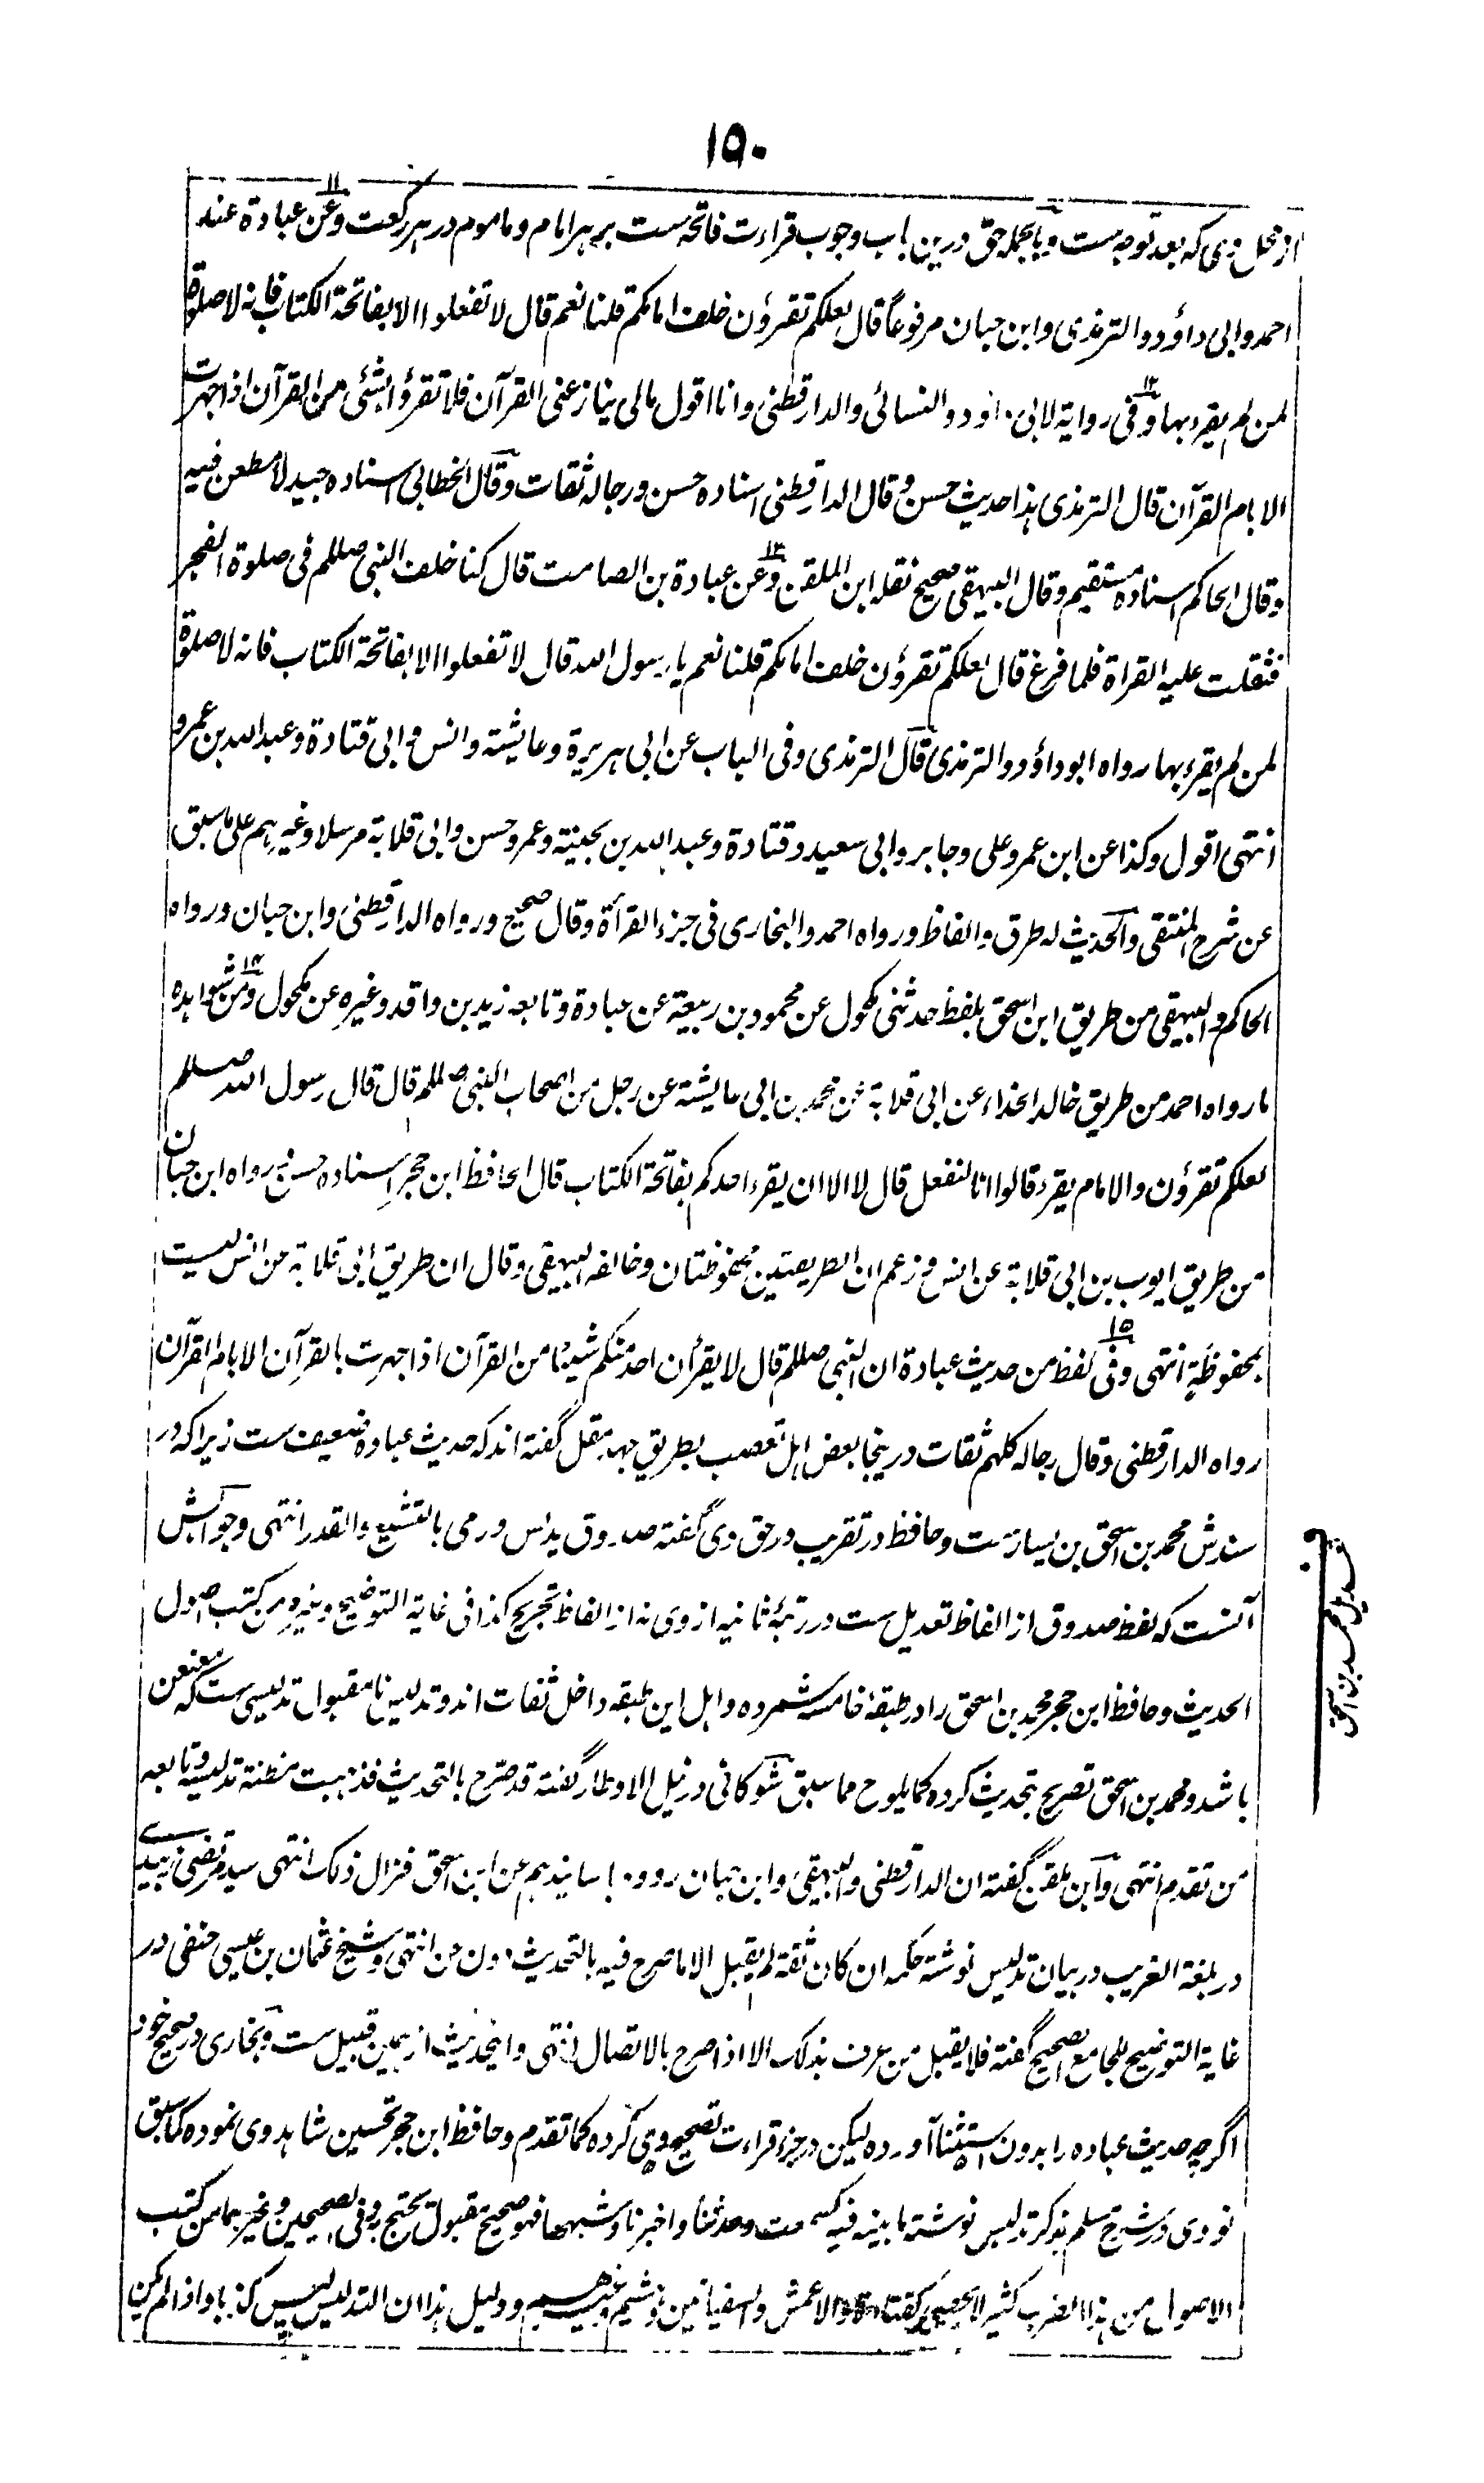 ۱۵۰
از محل نزی که بعد توجه ست وبالجمله حق درین باب وجوب قراءت فاتحه ست بر هر امام وماموم در هر رکعت وعن عبادة عند
احمد وابی داؤد والترمذی وابن حبان مرفوعاً قال لعلکم تقرؤن خلف امامکم قلنا نعم قال لا تفعلوا الا بفاتحة الکتاب فانه لا صلوة
لمن لم یقرء بها وفی روایة لابی داؤد والنسائی والدارقطنی وانا اقول مالی ینازعنی القرآن فلا تقرؤا بشئی من القرآن اذا جهرت
الا بام القرآن قال الترمذی هذا حدیث حسن وقال الدارقطنی اسناده حسن ورجاله ثقات وقال الخطابی اسناده جید لا مطعن فیه
وقال الحاکم اسناده مستقیم وقال البیهقی صحیح نقله ابن الملقن وعن عبادة بن الصامت قال کنا خلف النبی صللم فی صلوة الفجر
فثقلت علیه القراة فلما فرغ قال لعلکم تقرؤن خلف امامکم قلنا نعم یا رسول الله قال لا تفعلوا الا بفاتحة الکتاب فانه لا صلوة
لمن لم یقرء بها رواه ابوداؤد والترمذی قال الترمذی وفی الباب عن ابی هریرة وعایشة وانس وابی قتادة وعبدالله بن عمرو
انتهی اقول وکذا عن ابن عمر وعلی وجابر وابی سعید وقتادة وعبدالله بن بحینة وعمرو حسن وابی قلابة مرسلا وغیرهم علی ماسبق
عن شرح المنتقی والحدیث له طرق والفاظ ورواه احمد والبخاری فی جزء القرأة وقال صحیح ورواه الدارقطنی وابن حبان ورواه
الحاکم والبیهقی من طریق ابن اسحق بلفظ حدثنی مکحول عن محمود بن ربیعة عن عبادة وتابعه زید بن واقد وغیره عن مکحول ومن شواهده
ما رواه احمد من طریق خالد الحذاء عن ابی قلابة عن محمد بن ابی عایشة عن رجل من اصحاب النبی صللم قال قال رسول الله صللم
لعلکم تقرؤن والامام یقرء قالوا انا لنفعل قال لا الا ان یقرء احدکم بفاتحة الکتاب قال الحافظ ابن حجر اسناده حسن ورواه ابن حبان
من طریق ایوب بن ابی قلابة عن انس وزعم ان الطریقتین محفوظتان وخالفه البیهقی وقال ان طریق ابی قلابة عن انس لیست
بمحفوظة انتهی وفی لفظ من حدیث عبادة ان النبی صللم قال لا یقرأن احد منکم شیئا من القرآن اذا جهرت بالقرآن الا بام القرآن
رواه الدارقطنی وقال رجاله کلهم ثقات درینجا بعض اهل تعصب بطریق گفته اند که حدیث عباده ضعیف ست زیراکه در
سندش محمد بن اسحق بن یسارست وحافظ در تقریب در حق وی گفته صدوق یدلس ورمی بالتشیع والقدر انتهی وجوابش
آنست که لفظ صدوق از الفاظ تعدیل ست در رتبۀ ثانیه از وی نه از الفاظ تجریح کذا فی غایة التوضیح وغیره من کتب اصول
الحدیث وحافظ ابن حجر محمد بن اسحق را در طبقۀ خامسه شمرده واهل این طبقه داخل ثقات اند وتدلیس نامقبول تدلیسی ست که معنعن
باشد ومحمد بن اسحق تصریح بتحدیث کرده کما یلوح مما سبق شوکانی در نیل الاوطار گفته قد صرح بالتحدیث فذهبت مظنة تدلیسه وتابعه
من تقدم انتهی وابن ملقن گفته ان الدارقطنی والبیهقی وابن حبان رووه باسانیدهم عن ابن اسحق فزال ذلک انتهی سید مرتضی زبیدی
در بلغة الغریب در بیان تدلیس نوشته حکمه ان کان ثقة لم یقبل الا ما صرح فیه بالتحدیث دون عن انتهی وشیخ عثمان بن عیسی حنفی در
غایة التوضیح للجامع الصحیح گفته فلا یقبل من عرف بذلک الا اذا صرح بالاتصال انتهی واینحدیث از همین قبیل ست وبخاری در صحیح خود
اگرچه حدیث عباده را بدون استثنا آورده لیکن در جزء قراءت تصحیح وی کرده کما تقدم وحافظ ابن حجر تحسین شاهد وی نموده کماسبق
نووی در شرح مسلم بذکر تدلیس نوشته ما بینه فیه کسمعت وحدثنا واخبرنا وشبهها فهو صحیح مقبول یحتج به وفی الصحیحین وغیرهما من کتب
الاصول من هذا الضرب کثیر لا یحصی کقتادة والاعمش والسفیانین وهشیم وغیرهم ودلیل هذا ان التدلیس لیس کذبا واذا لم یکن
تعدیل محمد بن اسحق